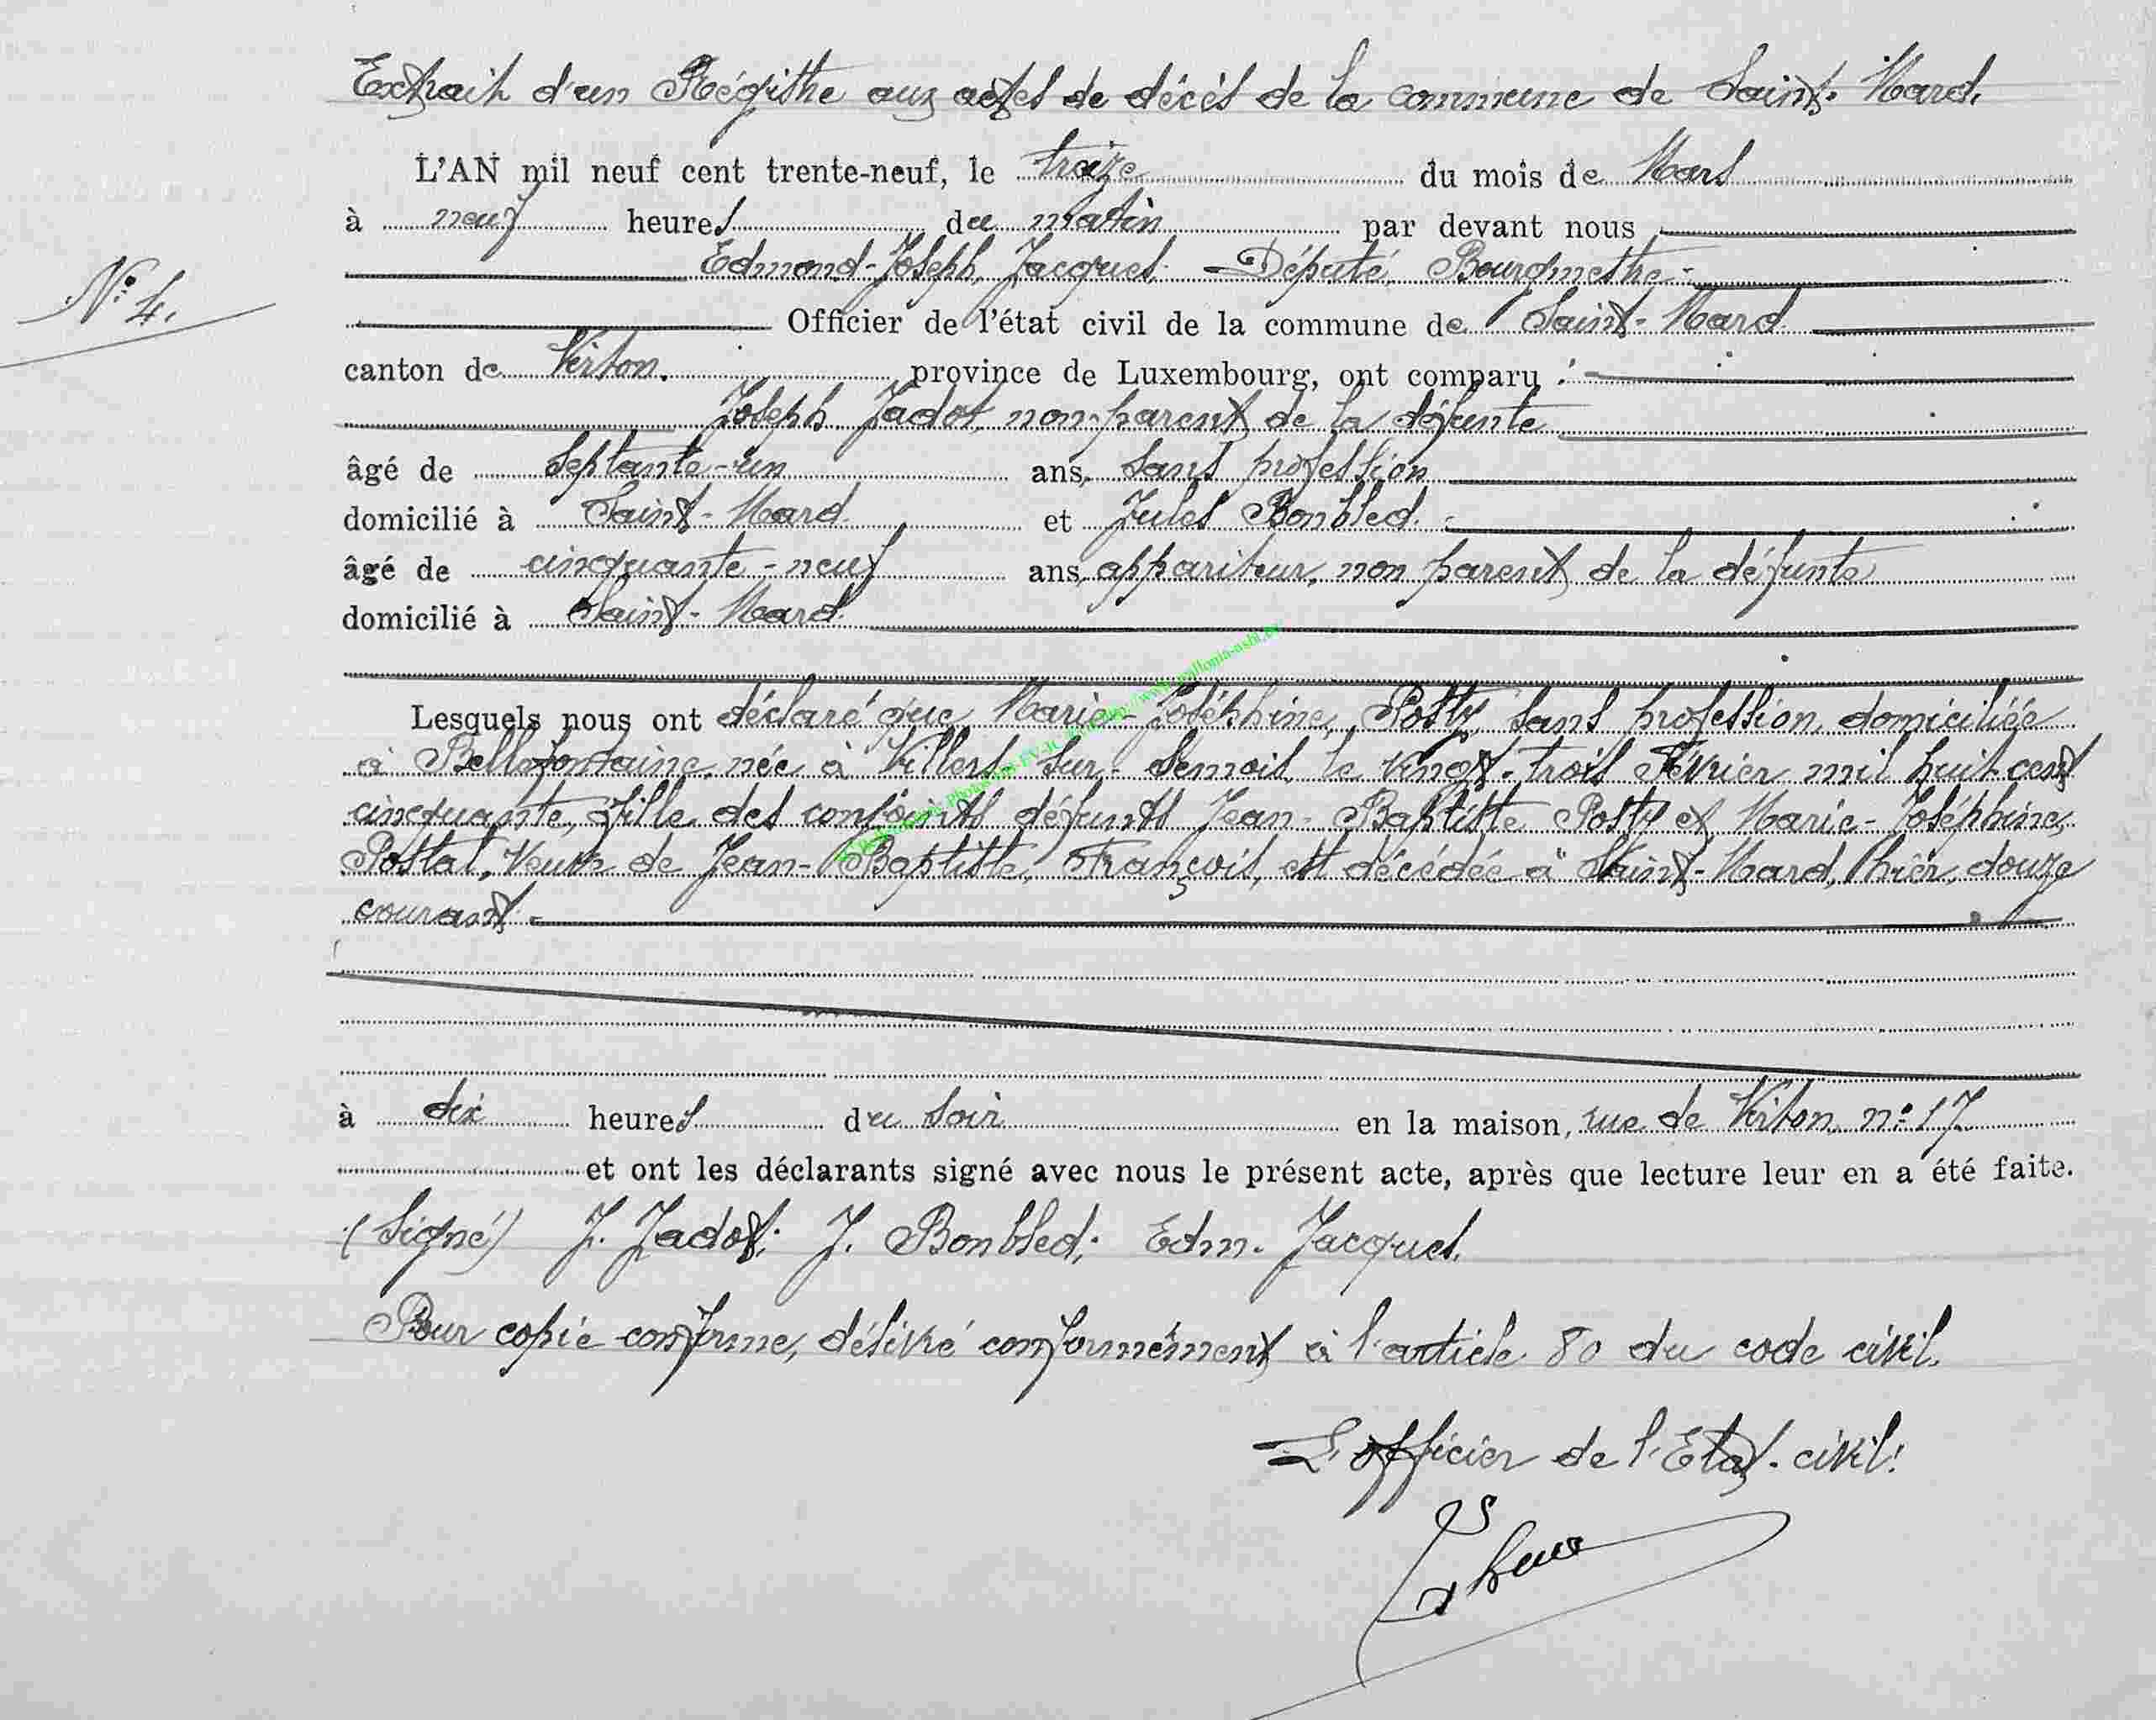 Extrait d'un Régistre aux actes de décès de la commune de Saint-Mard.
L'AN mil neuf cent trente-neuf, le treize du mois de Mars
à neuf heures du matin par devant nous
Edmond-Joseph, Jacques. Député, Bourgmestre
N° 4.
Officier de l'état civil de la commune de Saint-Mard
canton de Virton, province de Luxembourg, ont comparu :
Joseph Jadot, non parent de la défunte
âgé de septante-un ans, sans profession
domicilié à Saint-Mard et Jules Bonbled.
âgé de cinquante-neuf ans, appariteur, non parent de la défunte
domicilié à Saint-Mard.
Lesquels nous ont déclaré que Marie-Joséphine, Posty, sans profession, domiciliée
à Bellefontaine, née à Villers-sur-Semois, le vingt-trois Février mil huit cent
cinquante, fille des conjoints défunts Jean-Baptiste Posty et Marie-Joséphine,
Postal, Veuve de Jean-Baptiste, François, est décédée à Saint-Mard, hier, douze
courant
à dix heures du soir en la maison, rue de Virton, n° 17
et ont les déclarants signé avec nous le présent acte, après que lecture leur en a été faite.
(Signé) J. Jadot; J. Bonbled; Edm. Jacques.
Pour copie conforme, délivré conformément à l'article 80 du code civil.
L'officier de l'Etat-civil: